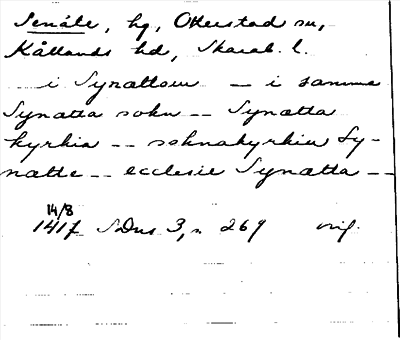 Senäte, hg, Otterstad sn,
Kållands hd, Skarab. l.
i Synættom -- i samma
Synætta sokn -- Synætta
kyrkia -- soknakyrkiu Sy-
nætte -- ecclesie Synætta --
14/8
1417 SDns 3, s 269 orig.